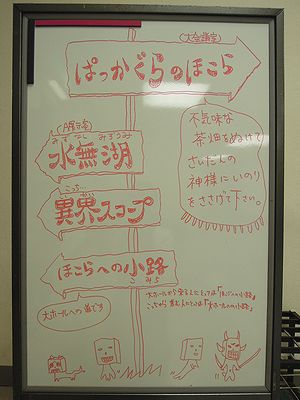 (大会議室)
ぱっかぐらのほこら
不気味な
茶畑をぬけて
さいたんの
神様にいのり
をささげて下さい。
(A展示室)
みずなしみずうみ
水無湖
こっち
異界スコープ
ほこらへの小路
こみち
大ホールへの道です
大ホールから来る人にとっては「ほこらへの小路」
こっちから進む人にとっては「大ホールへの小路」